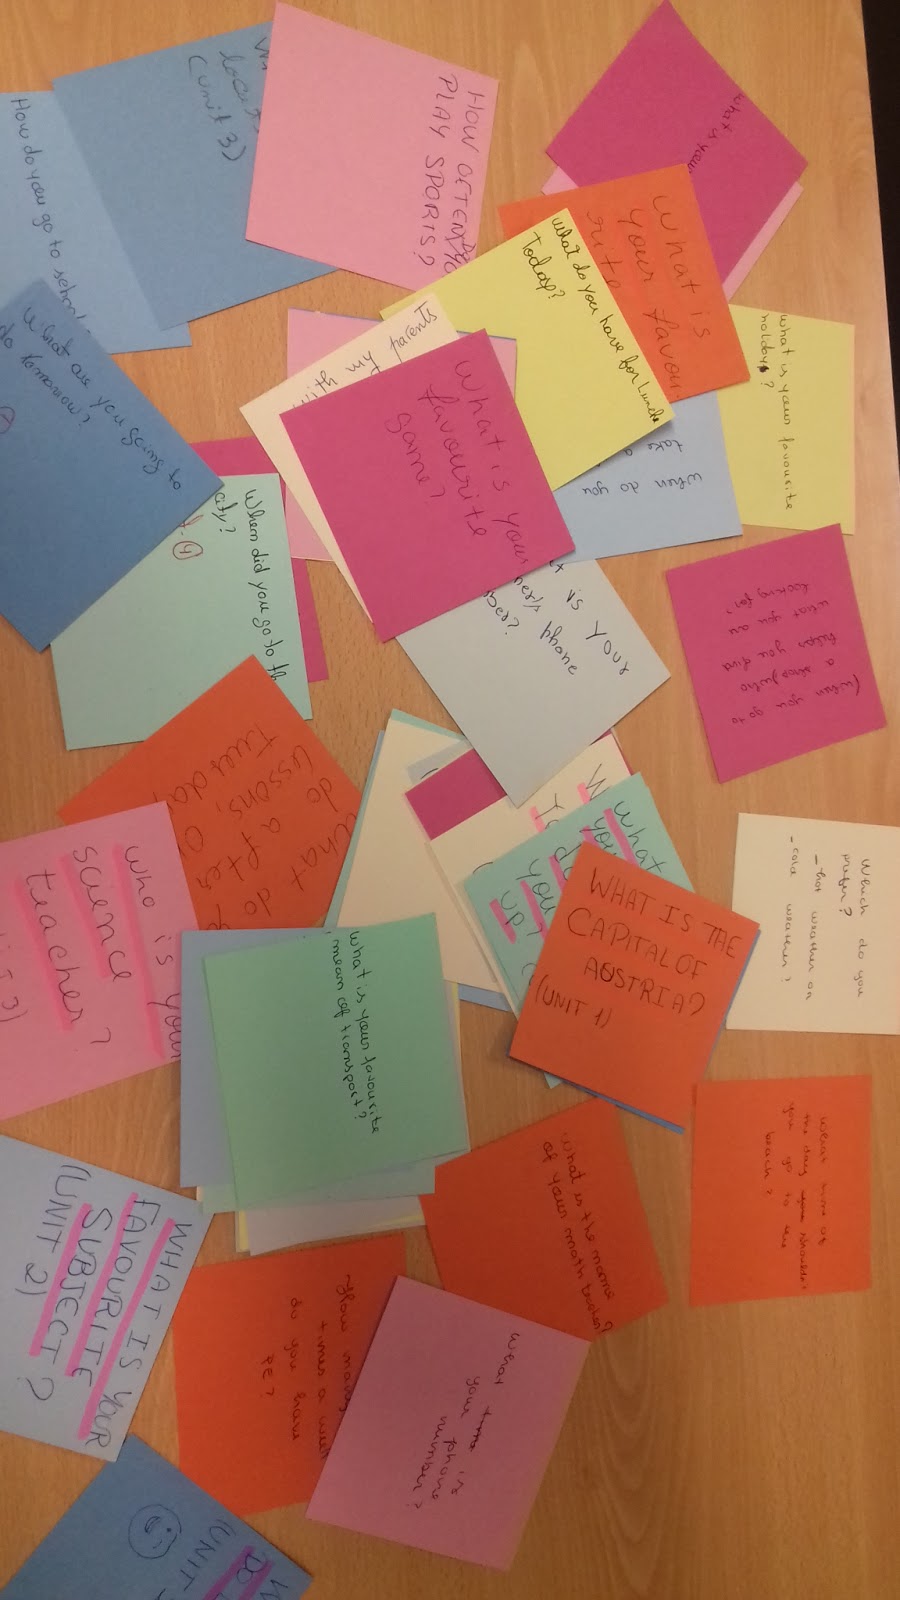 HOW OFTEN DO YO
PLAY SPORTS?
(UNIT 3)
How do you go to school
what is your
What is
your favour
rite
what do you have for lunch
Today?
what is your favourite
holiday?
when do you
take a
parents
What is your
favourite
game?
What are you going to
do tomorrow?
When did you go to th
city?
is your
phone
(when you go to
a shop) who
helps you find
what you are
looking for?
What do y
do after
lessons, o
tuesday
who is your
science
teacher?
What
you
you
up?
WHAT IS THE
CAPITAL OF
AUSTRIA?
(UNIT 1)
Which do you
prefer?
-hot weather or
-cold weather?
what is your favourite
mean of transport?
what time of
the day you should
you go to the
beach?
what is the name
of your math teacher?
WHAT IS YOUR
FAVOURITE
SUBJECT?
(UNIT 2)
How many
times a week
do you have
PE?
what time is
your phone
number?
(UNIT